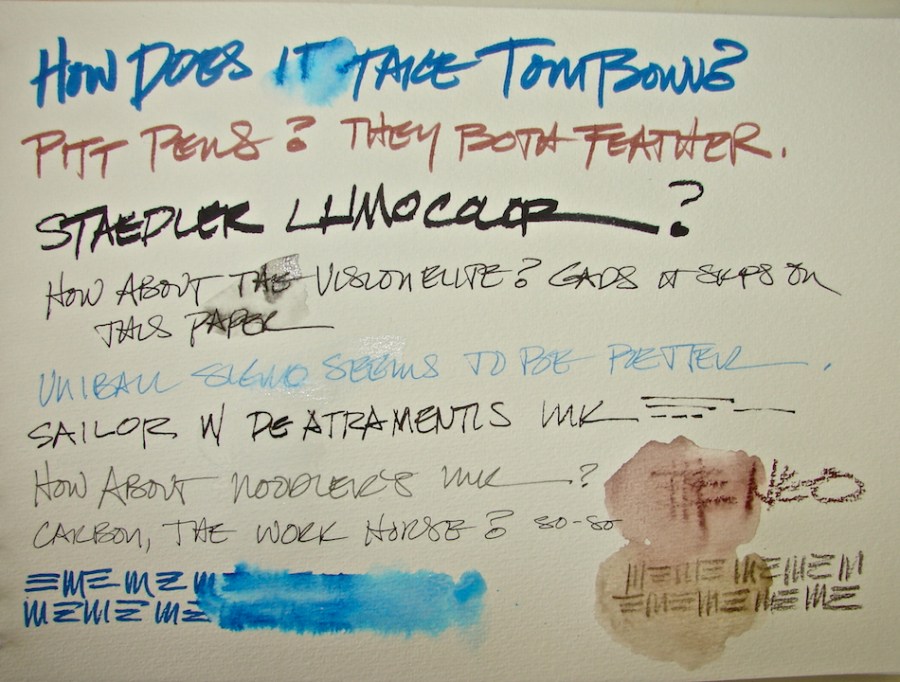 HOW DOES IT TAKE TOMBOWNS?
PITT PENS? THEY BOTH FEATHER.
STAEDLER LUMOCOLOR ?
HOW ABOUT THE VISION ELITE? GADS IT SKIPS ON
THIS PAPER
UNIBALL SIGNO SEEMS TO BE BETTER.
SAILOR W/ DE ATRAMENTIS INK
HOW ABOUT NOODLER'S INK ?
CARBON, THE WORK HORSE? SO-SO
NEO